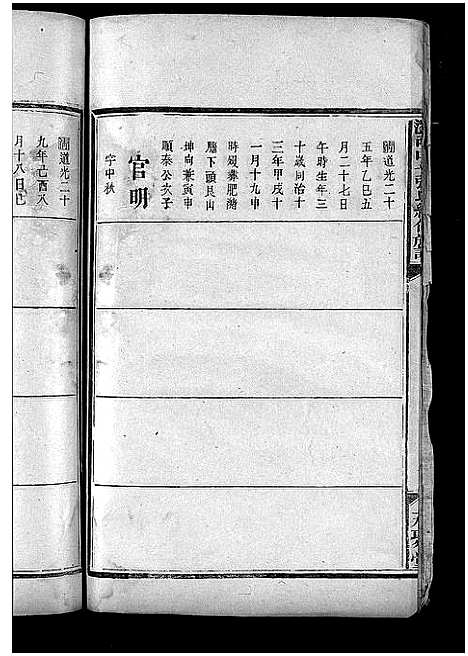 清道光二十
五年乙巳五
月二十七日
午時生年三
十歲同治十
三年甲戌十
一月十九申
時歿葬肥灣
廳下頭艮山
坤向兼寅申
順泰公次子
官明
字中秋
清道光二十
九年己酉八
月十八日巳